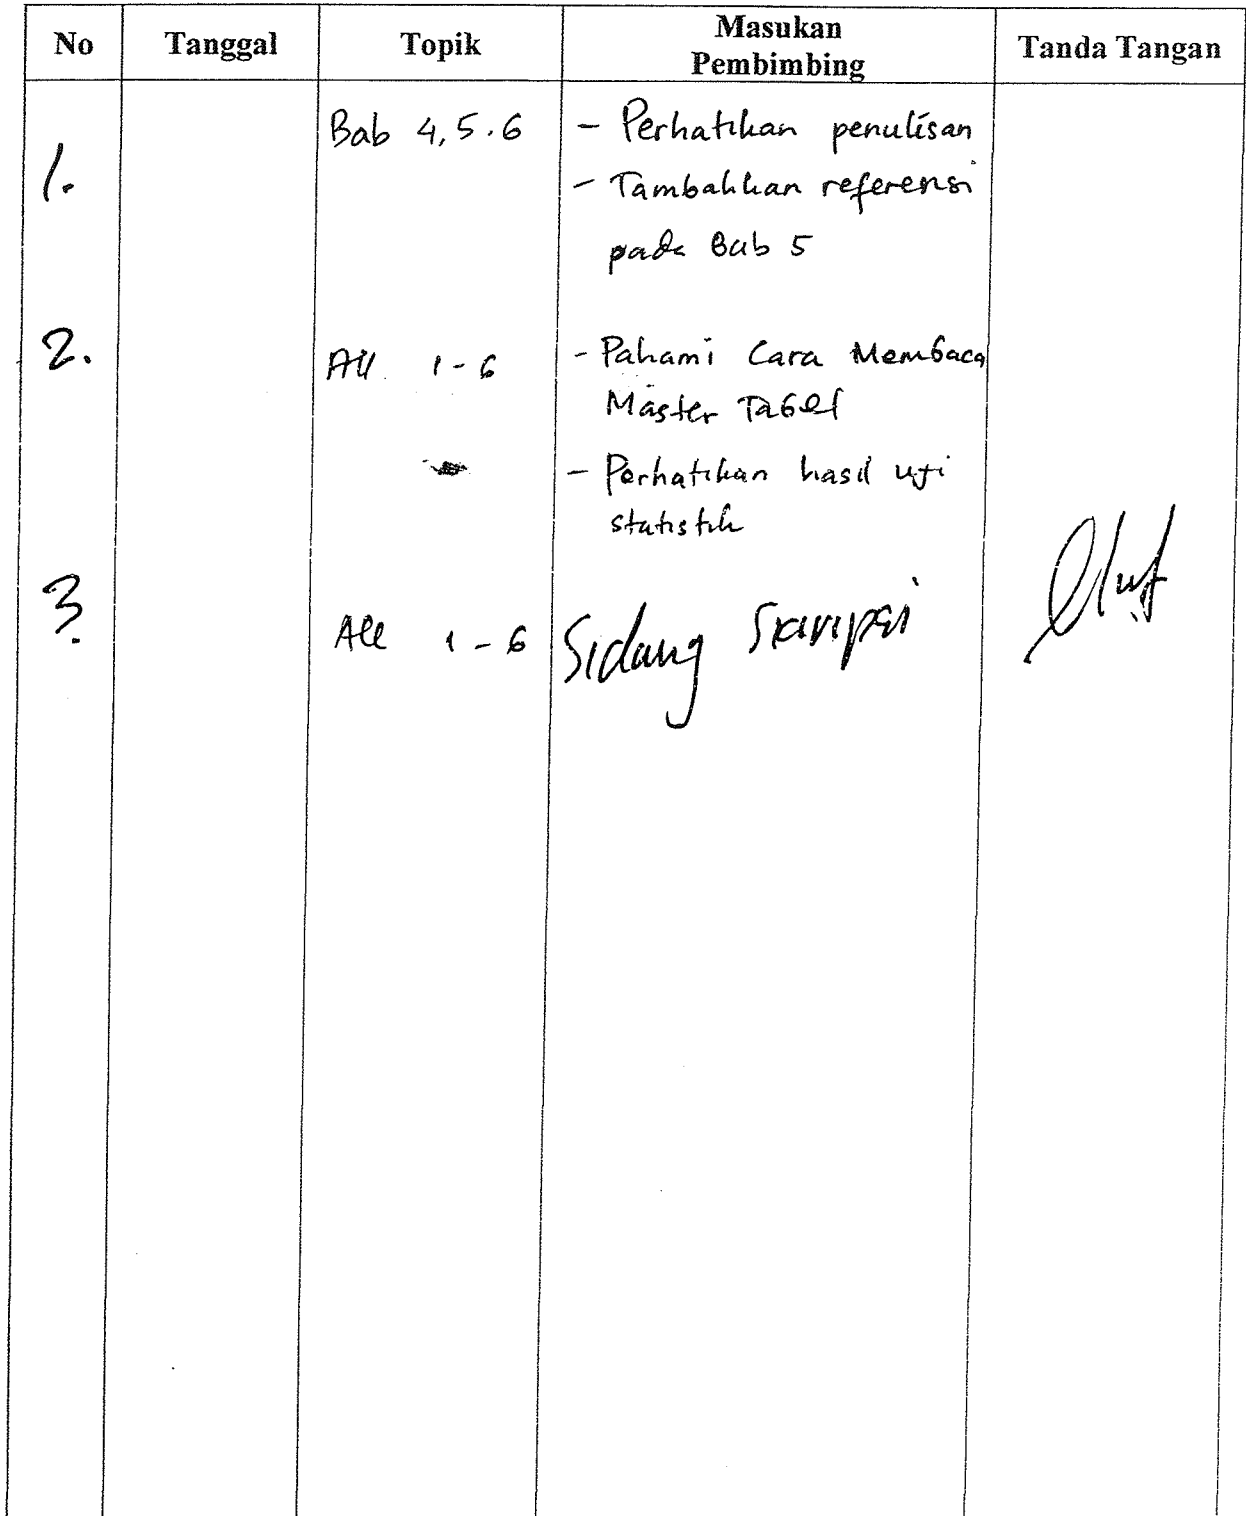 No Tanggal Topik Masukan Pembimbing Tanda Tangan
1. Bab 4, 5. 6 - Perhatikan penulisan
- Tambahkan referensi
pada Bab 5
2. All 1 - 6 - Pahami Cara Membaca
Master Tabel
- Perhatikan hasil uji
statistik
3. All 1 - 6 Sidang Skripsi